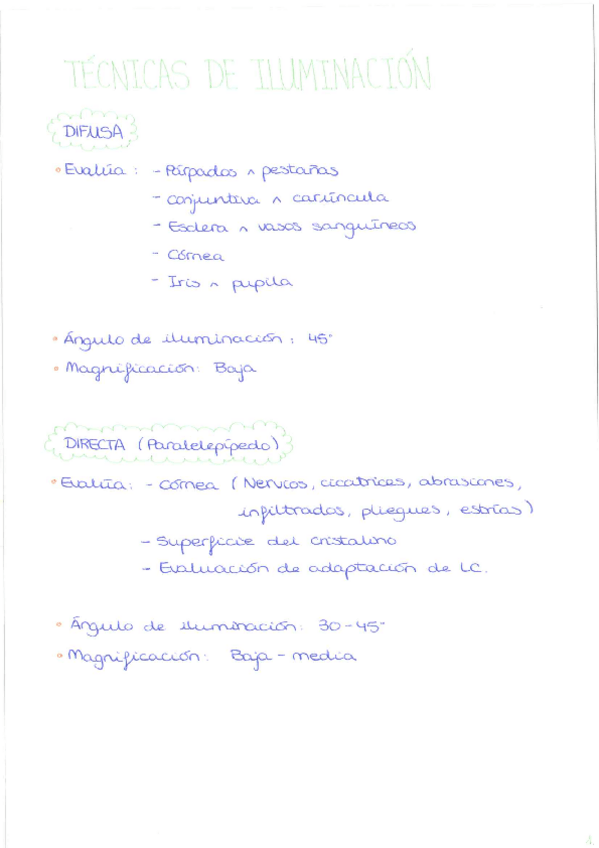 TÉCNICAS DE ILUMINACIÓN
DIFUSA
• Evalúa : - Párpados ^ pestañas
- Conjuntiva ^ carúncula
- Esclera ^ vasos sanguíneos
- Córnea
- Iris ^ pupila
• Ángulo de iluminación : 45°
• Magnificación: Baja
DIRECTA (Paralelepípedo)
• Evalúa: - Córnea (Nervios, cicatrices, abrasiones,
infiltrados, pliegues, estrías)
- Superficie del cristalino
- Evaluación de adaptación de LC.
• Ángulo de iluminación: 30-45°
• Magnificación: Baja - media